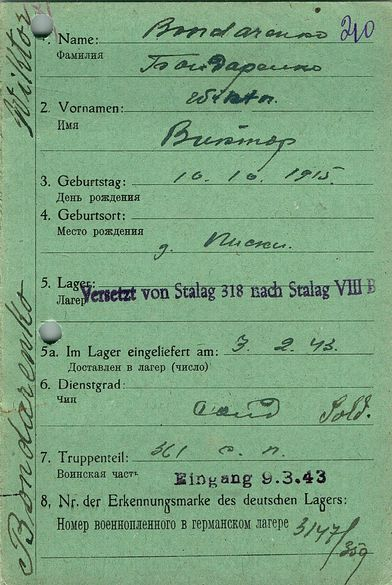 210
1. Name: Bondarenko
Фамилия Бондаренко
2. Vornamen: Viktor
Имя Виктор
3. Geburtstag: 10. 10. 1915.
День рождения
4. Geburtsort:
Место рождения
д. Писки.
5. Lager: Versetzt von Stalag 318 nach Stalag VIII B
Лагер
5a. Im Lager eingeliefert am: 3. 2. 43.
Доставлен в лагер (число)
6. Dienstgrad:
Чин
Sold.
7. Truppenteil: 361 с. п.
Воинская часть Eingang 9.3.43
8. Nr. der Erkennungsmarke des deutschen Lagers:
Номер военнопленного в германском лагере
Bondarenko Wiktor